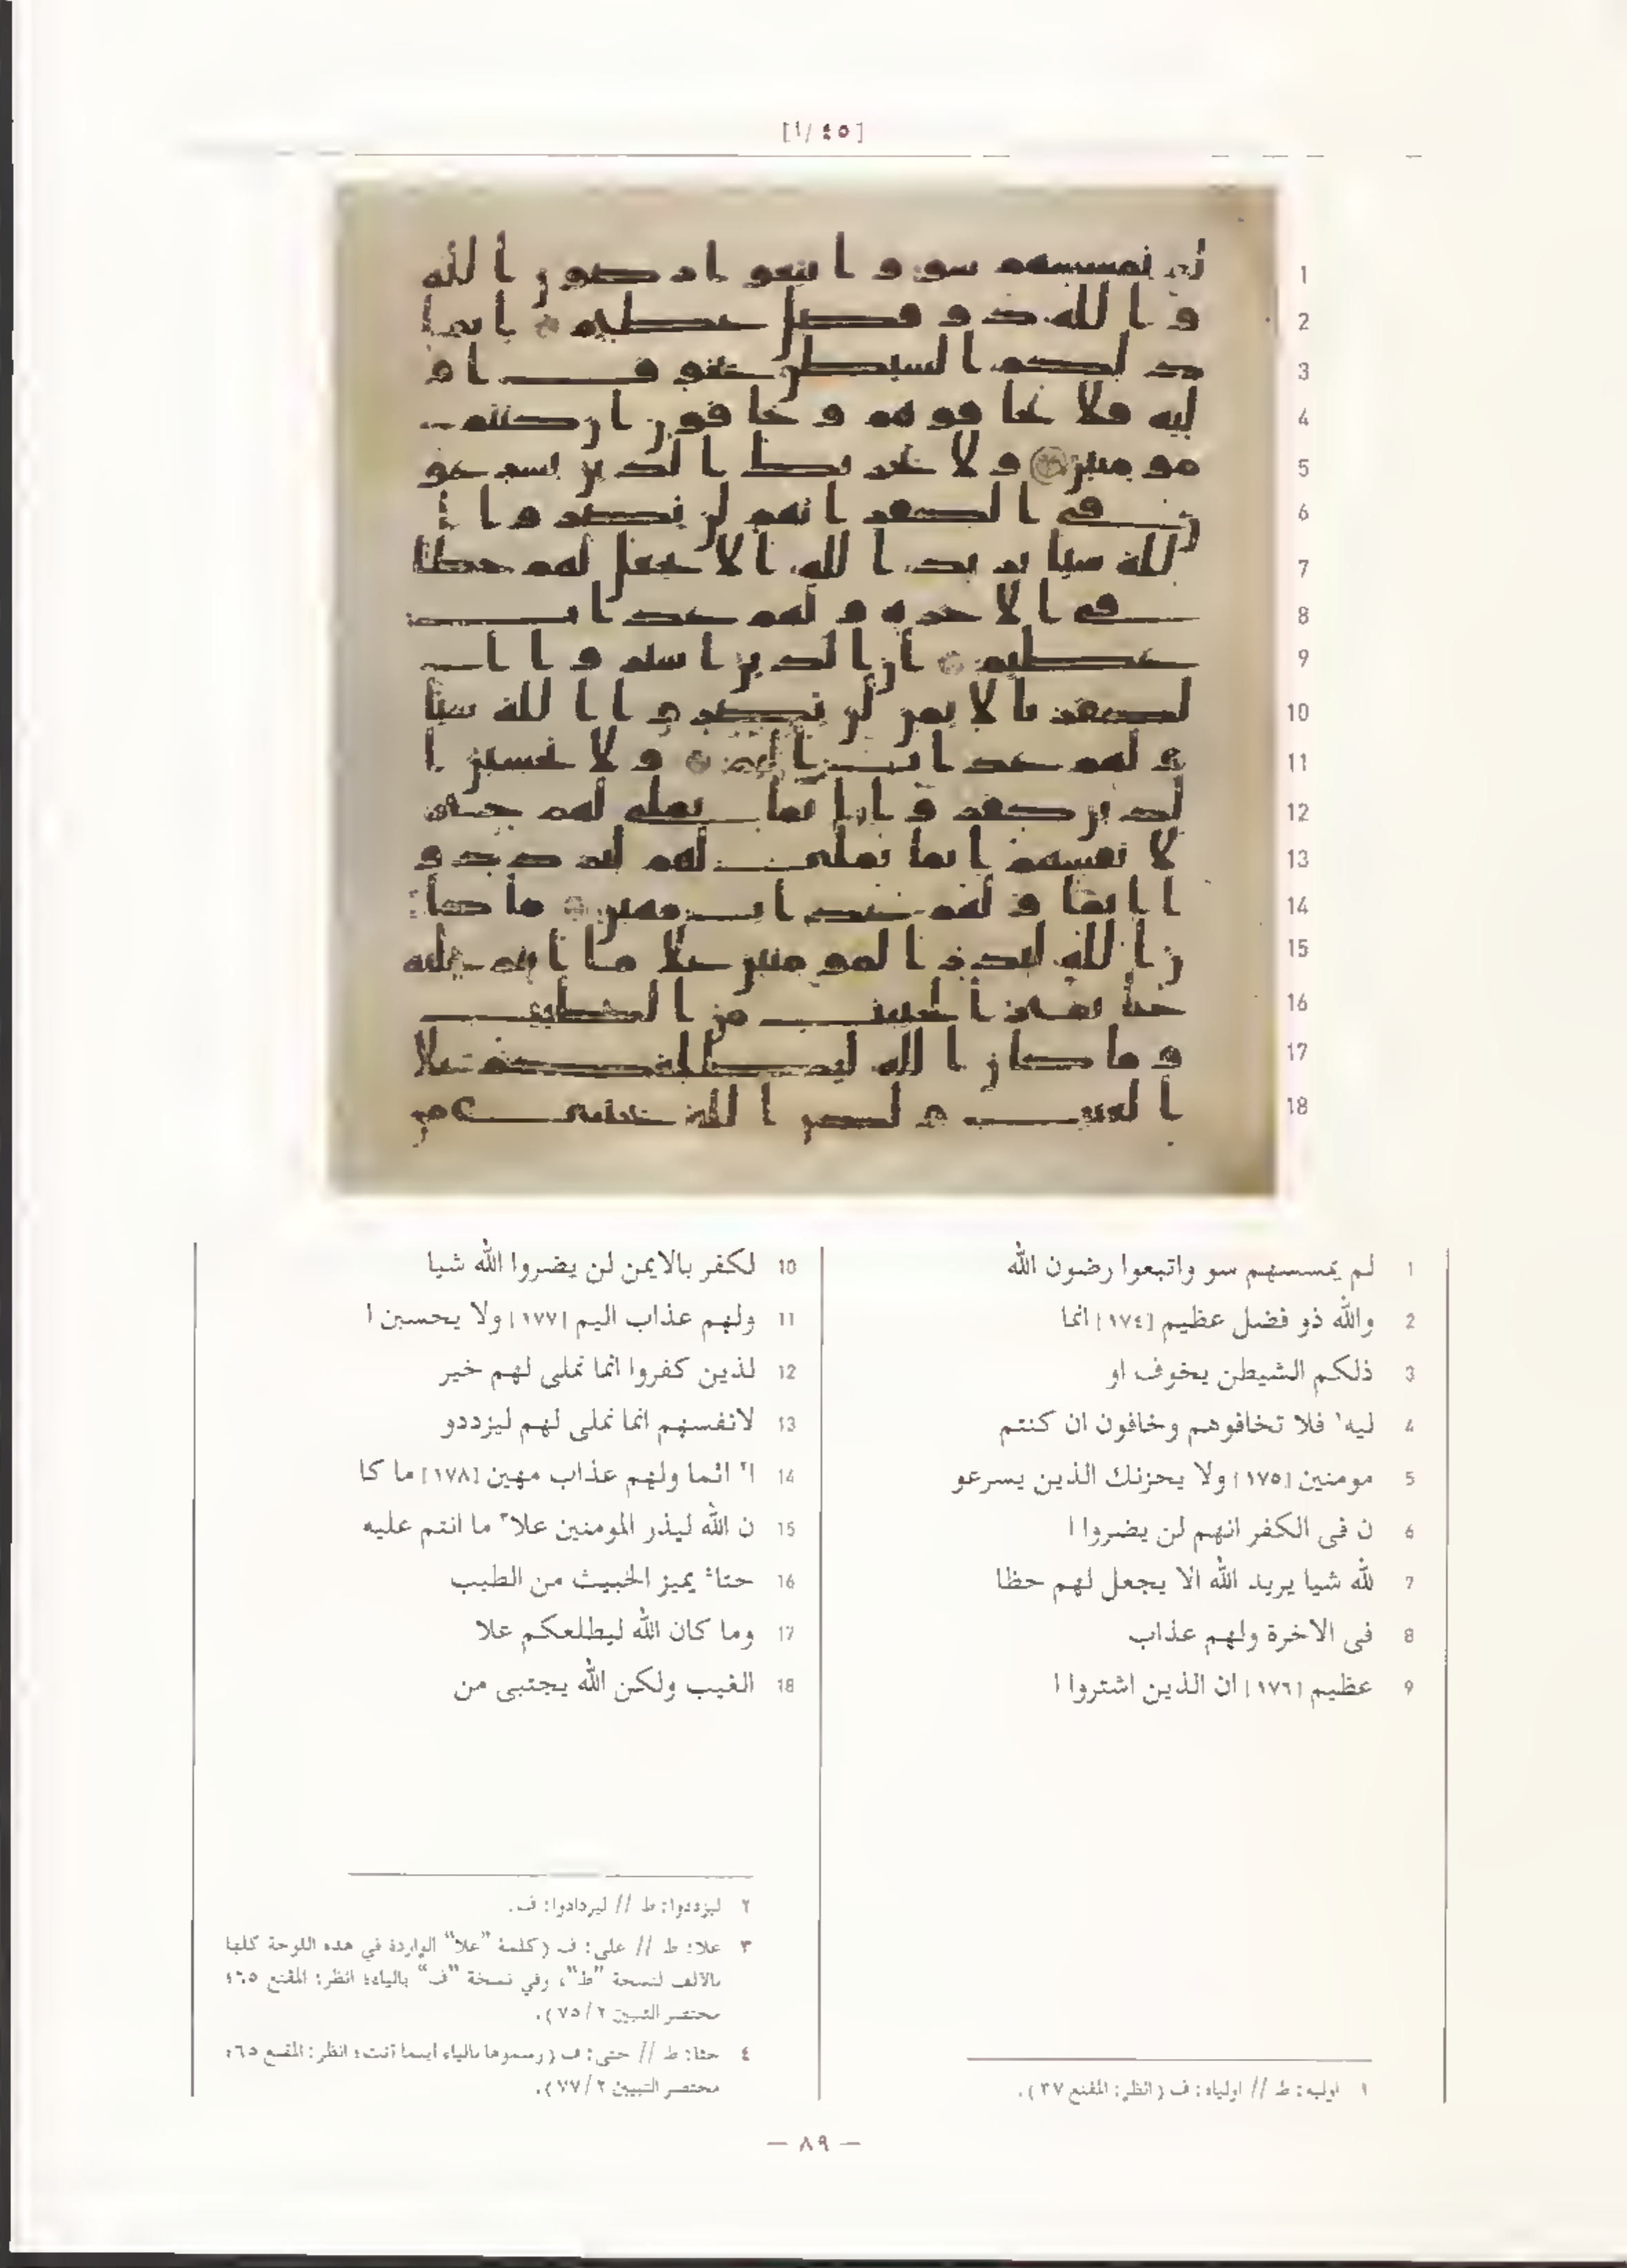 [٤٥/١]
1 لم يمسسهم سو واتبعوا رضون الله
2 والله ذو فضل عظيم [١٧٤] انما
3 ذلكم الشيطن يخوف او
4 ليه١ فلا تخافوهم وخافون ان كنتم
5 مومنين [١٧٥] ولا يحزنك الذين يسرعو
6 ن فى الكفر انهم لن يضروا ا
7 لله شيا يريد الله الا يجعل لهم حظا
8 فى الاخرة ولهم عذاب
9 عظيم [١٧٦] ان الذين اشتروا ا
١ اوليه: ط // اولياه: ف (انظر: المقنع ٣٧).
10 لكفر بالايمن لن يضروا الله شيا
11 ولهم عذاب اليم [١٧٧] ولا يحسبن ا
12 لذين كفروا انما نملى لهم خير
13 لانفسهم انما نملى لهم ليزددو
14 ا٢ اثما ولهم عذاب مهين [١٧٨] ما كا
15 ن الله ليذر المومنين علا٣ ما انتم عليه
16 حتا٤ يميز الخبيث من الطيب
17 وما كان الله ليطلعكم علا
18 الغيب ولكن الله يجتبى من
٢ ليزددوا: ط // ليزدادوا: ف.
٣ علا: ط // على: ف (كلمة "علا" الواردة في هذه اللوحة كلها
بالألف لنسخة "ط"، وفي نسخة "ف" بالياء؛ انظر: المقنع ٦٥؛
مختصر التبيين ٧٥/٢).
٤ حتا: ط // حتى: ف (رسموها بالياء أينما أتت؛ انظر: المقنع ٦٥؛
مختصر التبيين ٧٧/٢).
— ٨٩ —